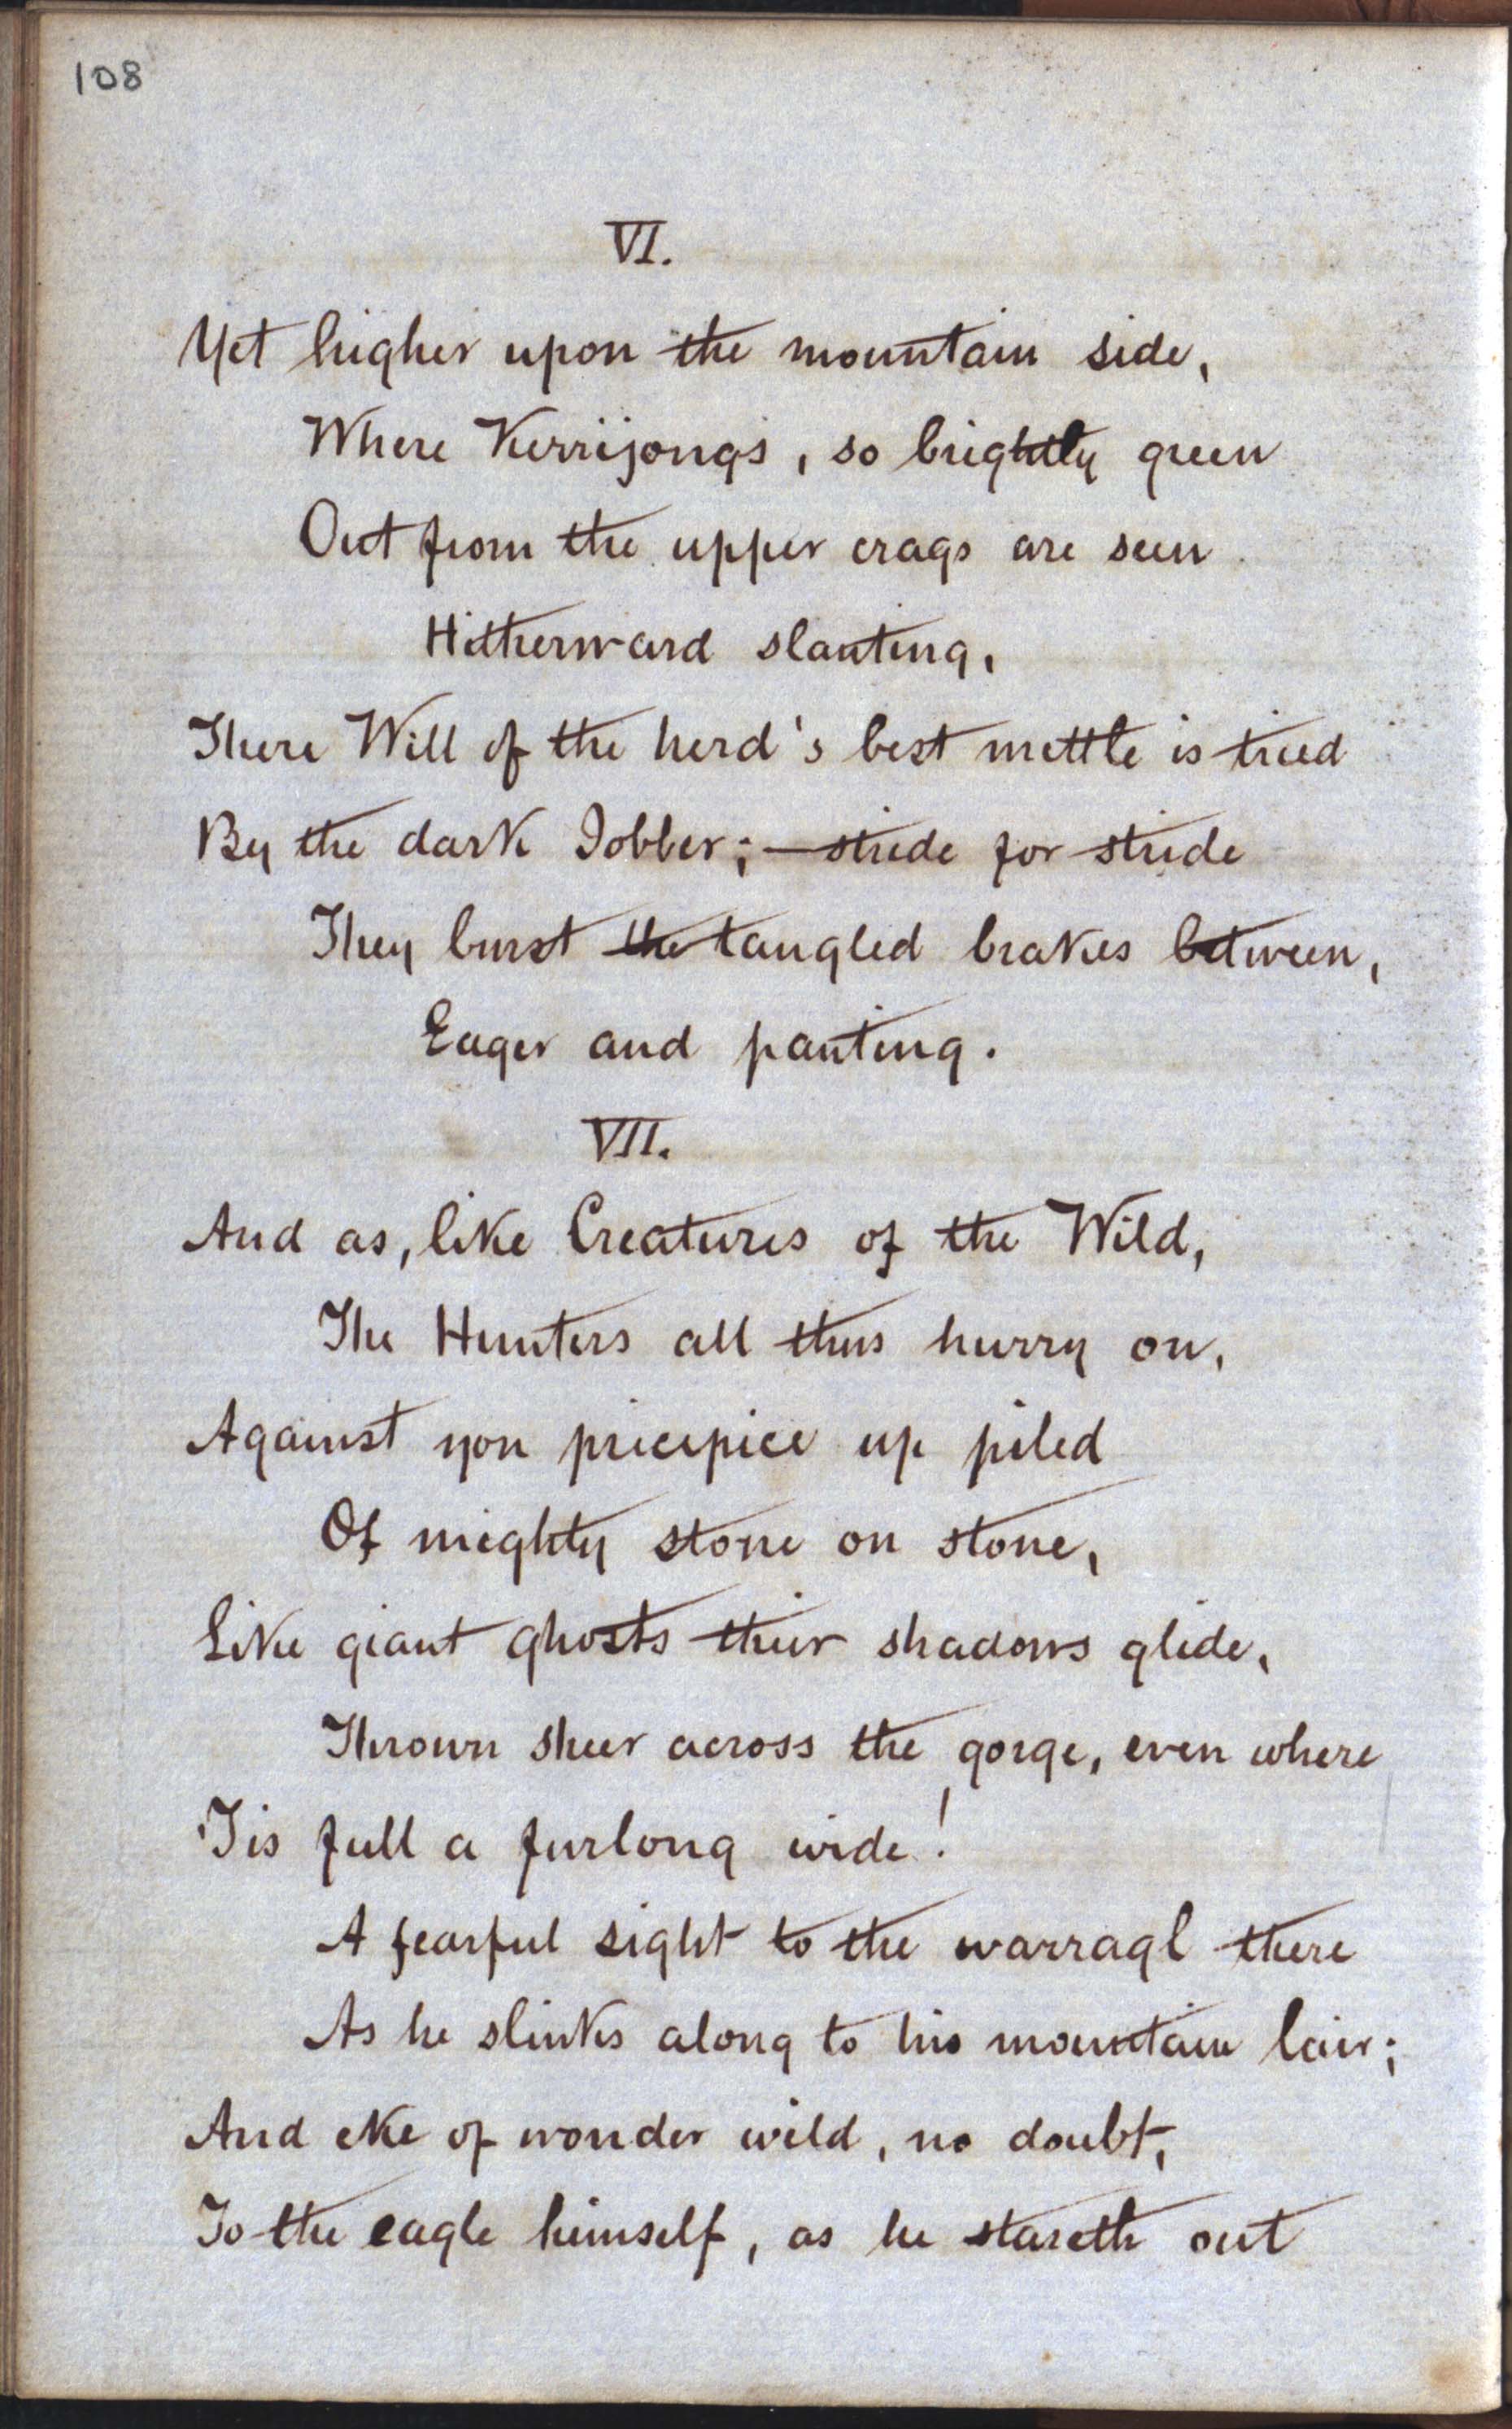 108
VI.
Yet higher upon the mountain side,
Where Kerrijongs, so brightly green
Out from the upper crags are seen
Hitherward slanting,
There Will of the herd's best mettle is tried
By the dark Jobber; — stride for stride
They burst the tangled brakes between,
Eager and panting.
VII.
And as, like Creatures of the Wild,
The Hunters all thus hurry on,
Against yon precipice up piled
Of mighty stone on stone,
Like giant ghosts their shadows glide,
Thrown sheer across the gorge, even where
'Tis full a furlong wide!
A fearful sight to the warragl there
As he slinks along to his mountain lair;
And eke of wonder wild, no doubt,
To the eagle himself, as he stareth out